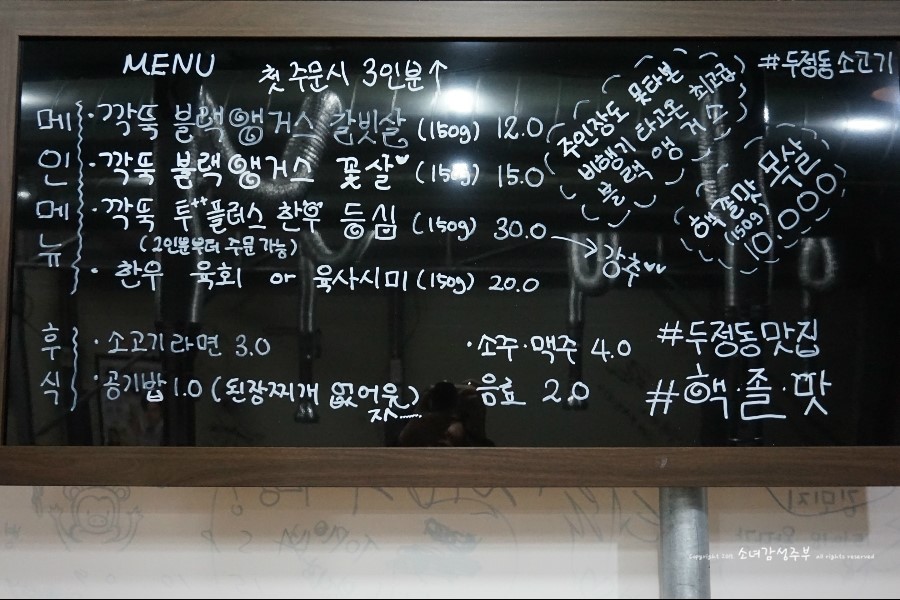 MENU 첫 주문시 3인분↑
메인메뉴
·깍뚝 블랙앵거스 갈빗살 (150g) 12.0
·깍뚝 블랙앵거스 꽃살♥ (150g) 15.0
·깍뚝 투++플러스 한우 등심 (150g) 30.0 → 강추♥♥
(2인분부터 주문가능)
·한우 육회 or 육사시미 (150g) 20.0
후식
·소고기라면 3.0
·공기밥 1.0 (된장찌개 없어웃)
·소주·맥주 4.0
음료 2.0
주인장도 못타본
비행기 타고온 최고급
블랙 앵거스
#두정동소고기
핵졸맛 목살
(150g) 10.000
#두정동맛집
#핵·졸·맛
Copyright 2015. 소녀감성주부 all rights reserved